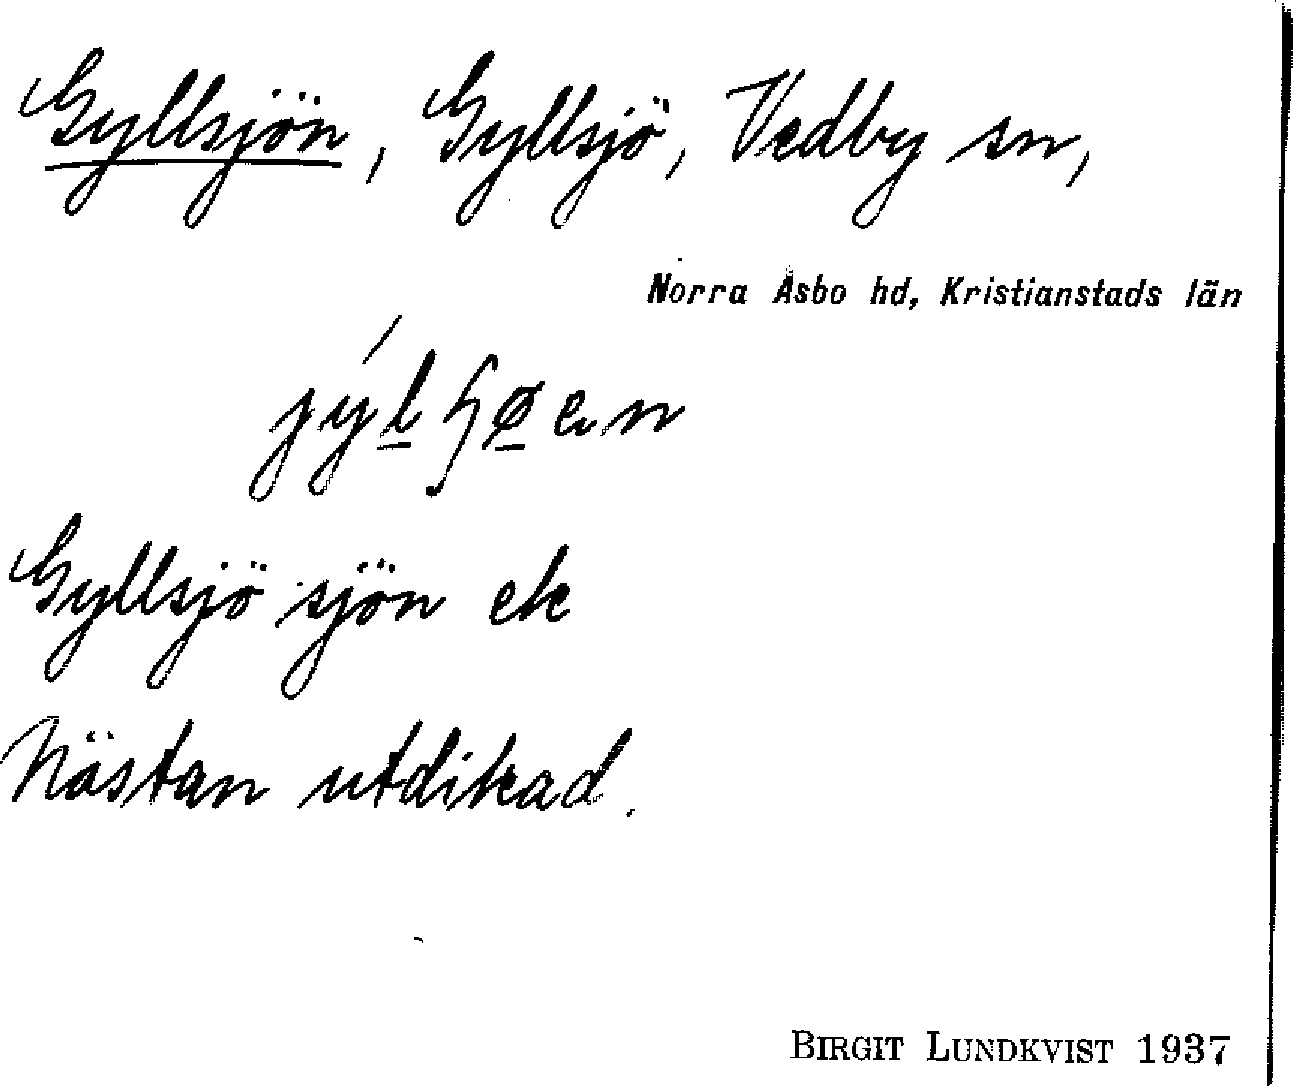 Gyllsjön, Gyllsjö, Vedby sn,
Norra Åsbo hd, Kristianstads län
Gyllsjö sjön ek
Nästan utdikad.
BIRGIT LUNDKVIST 1937